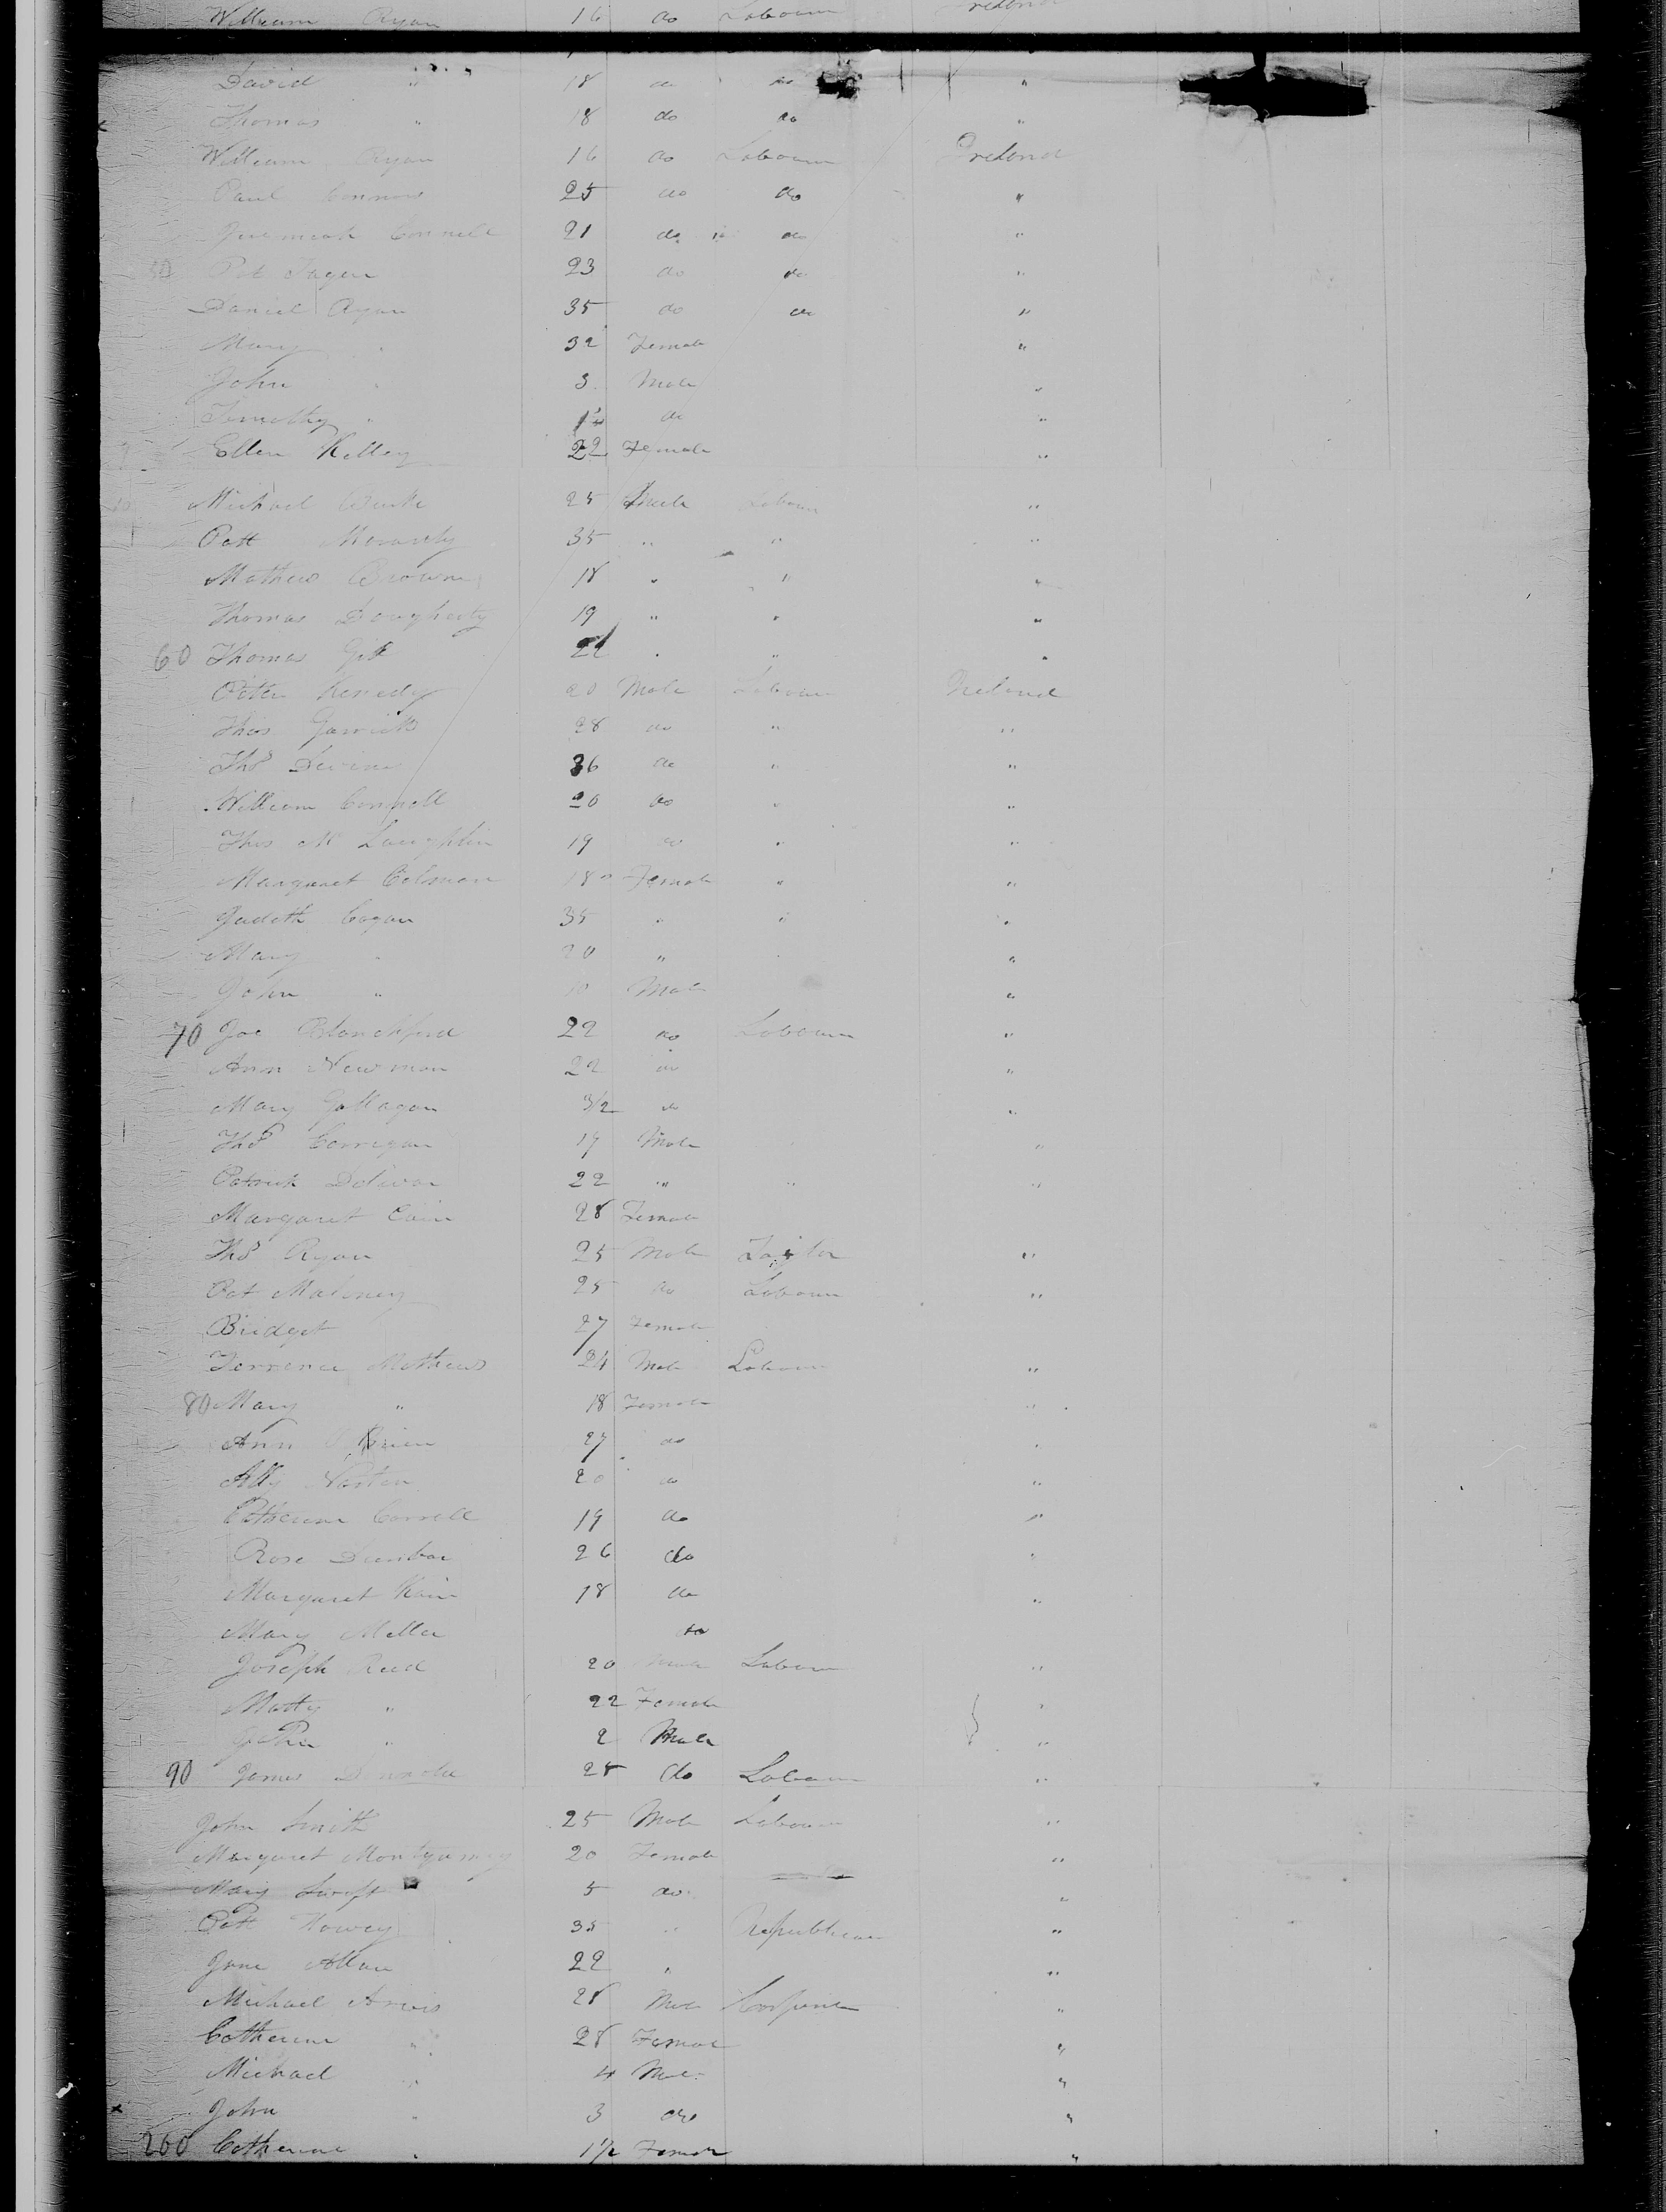 William Ryan 16 do Labourer Ireland
David " 18 do do "
Thomas " 18 do do "
William Ryan 16 do Labourer Ireland
Paul Connors 25 do do "
Jeremiah Connell 21 do do "
50 Pat Fagan 23 do do "
Daniel Ryan 35 do do "
Mary " 32 Female "
John " 3 Male "
Timothy " do "
Ellen Kelley 22 Female "
Michael Burke 25 Male Labourer "
Patt 35 " " "
Mathew Brown 18 " " "
Thomas Dougherty 19 " " "
60 Thomas Gill " " "
Peter Kenedy 20 Male Labourer Ireland
Thos Garrick 28 do " "
Thos Devine 36 do " "
William Connell 20 do " "
Thos Mc Laughlin 19 do " "
Margaret Colman 18 Female " "
Judeth Cogan 35 " " "
Mary " 20 " "
John " 10 Male "
70 Joe Blanchford 22 do Labourer "
Ann Newman 22 do "
Mary Gallagan do "
Thos Corrigan 19 Male "
Patrick 22 " " "
Margaret Cain 28 Female
Thos Ryan 25 Male Tailor "
Pat Maloney 25 do Labourer "
Bridget 27 Female
Terrence Mathews 24 Male Labourer "
80 Mary " 18 Female "
Ann OBrien 27 do "
Norton 20 do "
Catherine Correll 19 do "
Rose Dunbar 26 do "
Margaret Kain 18 do "
Mary Miller do
Joseph Reed 20 Male Labourer "
Matty " 22 Female "
John " 2 Male "
90 James 25 do Labourer "
John Smith 25 Male Labourer "
Margaret Montgomery 20 Female "
Mary Swift 5 do "
Patt Howey 35 " Republican "
Jane Allan 22 " "
Michael 28 Male Carpenter "
Catherine " 28 Female "
Michael " 4 Male "
John " 3 do "
200 Catherine " 1½ Female "